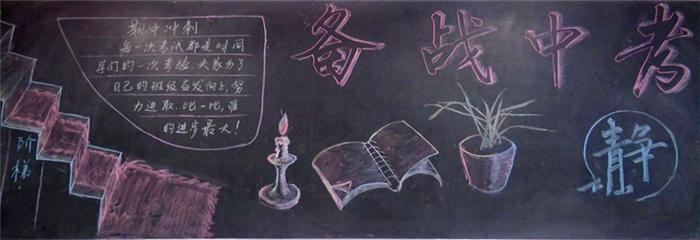 备战中考
期中冲刺
每一次考试都是对同
学们的一次考验,大家为了
自己的班级奋发向上,努
力进取.比一比,谁
的进步最大!
阶梯
静